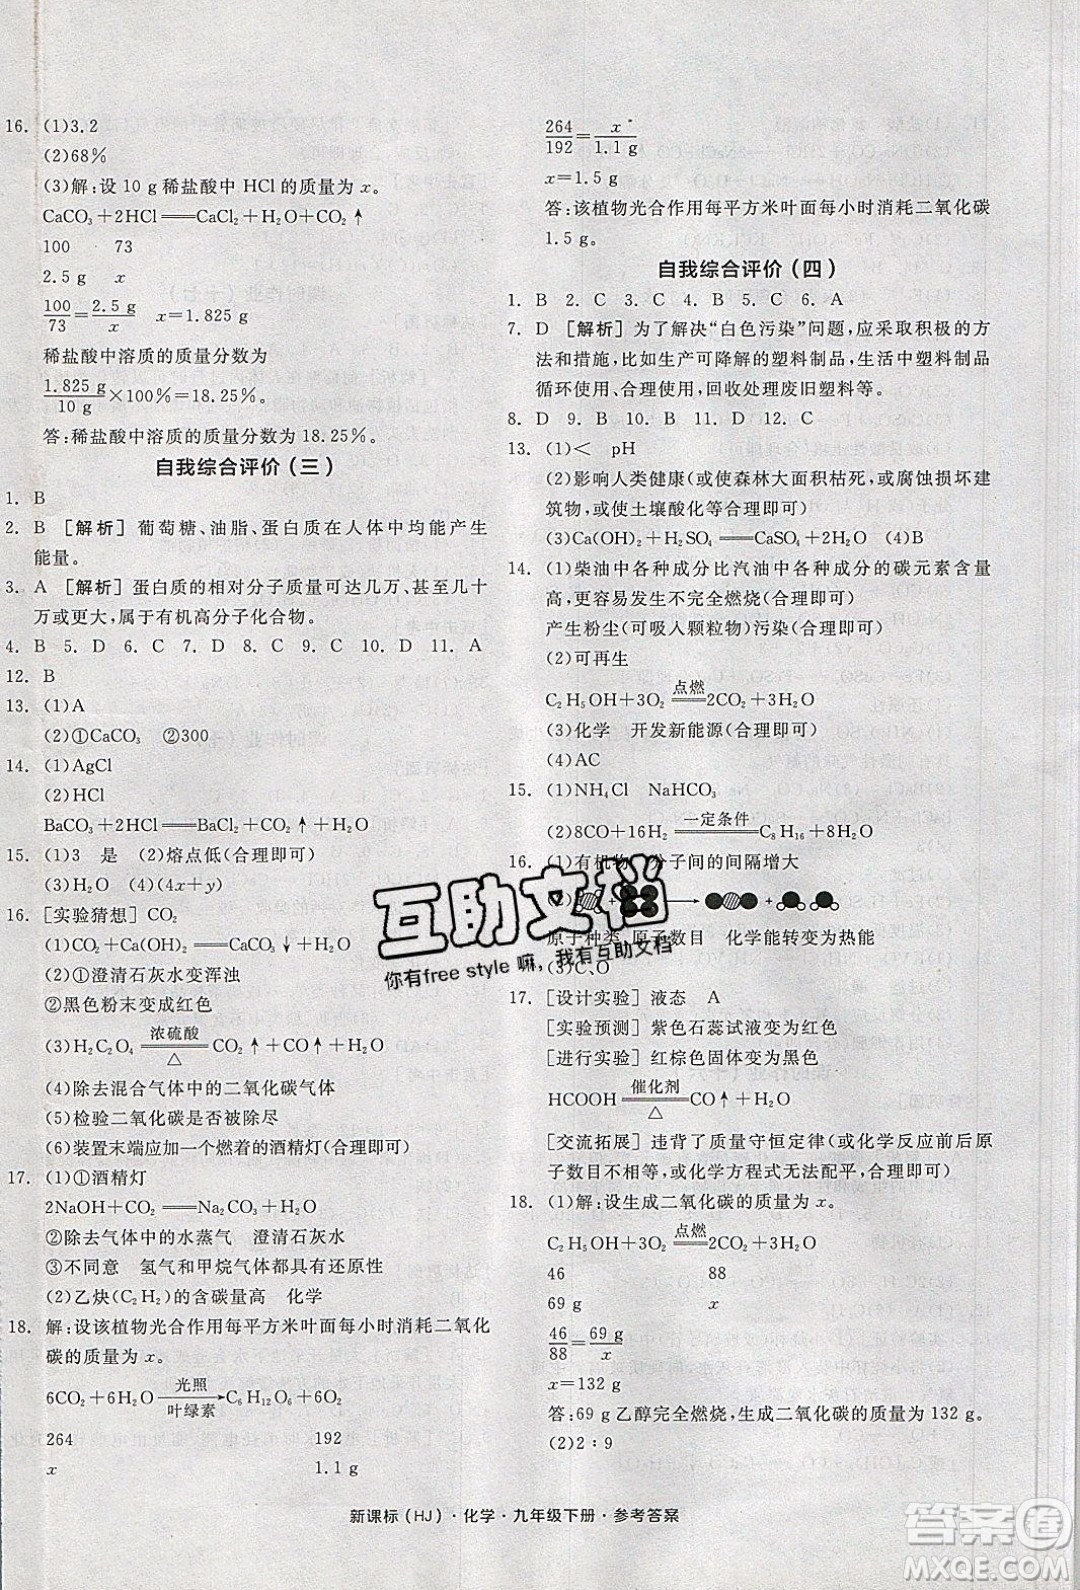 16. (1)3.2
(2)68%
(3)解:设 10 g 稀盐酸中 HCl 的质量为 x。
CaCO₃+2HCl══CaCl₂+H₂O+CO₂↑
100 73
2.5 g x
100/73=2.5 g/x x=1.825 g
稀盐酸中溶质的质量分数为
1.825 g/10 g×100%=18.25%。
答:稀盐酸中溶质的质量分数为 18.25%。
自我综合评价(三)
1. B
2. B [解析] 葡萄糖、油脂、蛋白质在人体中均能产生
能量。
3. A [解析] 蛋白质的相对分子质量可达几万、甚至几十
万或更大,属于有机高分子化合物。
4. B 5. D 6. C 7. D 8. C 9. C 10. D 11. A
12. B
13. (1)A
(2)①CaCO₃ ②300
14. (1)AgCl
(2)HCl
BaCO₃+2HCl══BaCl₂+CO₂↑+H₂O
15. (1)3 是 (2)熔点低(合理即可)
(3)H₂O (4)(4x+y)
16. [实验猜想] CO₂
(1)CO₂+Ca(OH)₂══CaCO₃↓+H₂O
(2)①澄清石灰水变浑浊
②黑色粉末变成红色
(3)H₂C₂O₄ 浓硫酸══△ CO₂↑+CO↑+H₂O
(4)除去混合气体中的二氧化碳气体
(5)检验二氧化碳是否被除尽
(6)装置末端应加一个燃着的酒精灯(合理即可)
17. (1)①酒精灯
2NaOH+CO₂══Na₂CO₃+H₂O
②除去气体中的水蒸气 澄清石灰水
③不同意 氢气和甲烷气体都具有还原性
(2)乙炔(C₂H₂)的含碳量高 化学
18. 解:设该植物光合作用每平方米叶面每小时消耗二氧化
碳的质量为 x。
6CO₂+6H₂O 光照→叶绿素 C₆H₁₂O₆+6O₂
264 192
x 1.1 g
264/192=x/1.1 g
x=1.5 g
答:该植物光合作用每平方米叶面每小时消耗二氧化碳
1.5 g。
自我综合评价(四)
1. B 2. C 3. C 4. B 5. C 6. A
7. D [解析] 为了解决“白色污染”问题,应采取积极的方
法和措施,比如生产可降解的塑料制品,生活中塑料制品
循环使用、合理使用,回收处理废旧塑料等。
8. D 9. B 10. B 11. D 12. C
13. (1)< pH
(2)影响人类健康(或使森林大面积枯死,或腐蚀损坏建
筑物,或使土壤酸化等合理即可)
(3)Ca(OH)₂+H₂SO₄══CaSO₄+2H₂O (4)B
14. (1)柴油中各种成分比汽油中各种成分的碳元素含量
高,更容易发生不完全燃烧(合理即可)
产生粉尘(可吸入颗粒物)污染(合理即可)
(2)可再生
C₂H₅OH+3O₂ 点燃══ 2CO₂+3H₂O
(3)化学 开发新能源(合理即可)
(4)AC
15. (1)NH₄Cl NaHCO₃
(2)8CO+16H₂ 一定条件══ C₈H₁₆+8H₂O
16. (1)有机物 分子间的间隔增大
(2)
原子种类、原子数目 化学能转变为热能
(3)C、O
17. [设计实验] 液态 A
[实验预测] 紫色石蕊试液变为红色
[进行实验] 红棕色固体变为黑色
HCOOH 催化剂══△ CO↑+H₂O
[交流拓展] 违背了质量守恒定律(或化学反应前后原
子数目不相等,或化学方程式无法配平,合理即可)
18. (1)解:设生成二氧化碳的质量为 x。
C₂H₅OH+3O₂ 点燃══ 2CO₂+3H₂O
46 88
69 g x
46/88=69 g/x
x=132 g
答:69 g 乙醇完全燃烧,生成二氧化碳的质量为 132 g。
(2)2∶9
互助文档
你有free style 嘛,我有互助文档
新课标(HJ)·化学·九年级下册·参考答案
答案圈
MXQE.COM